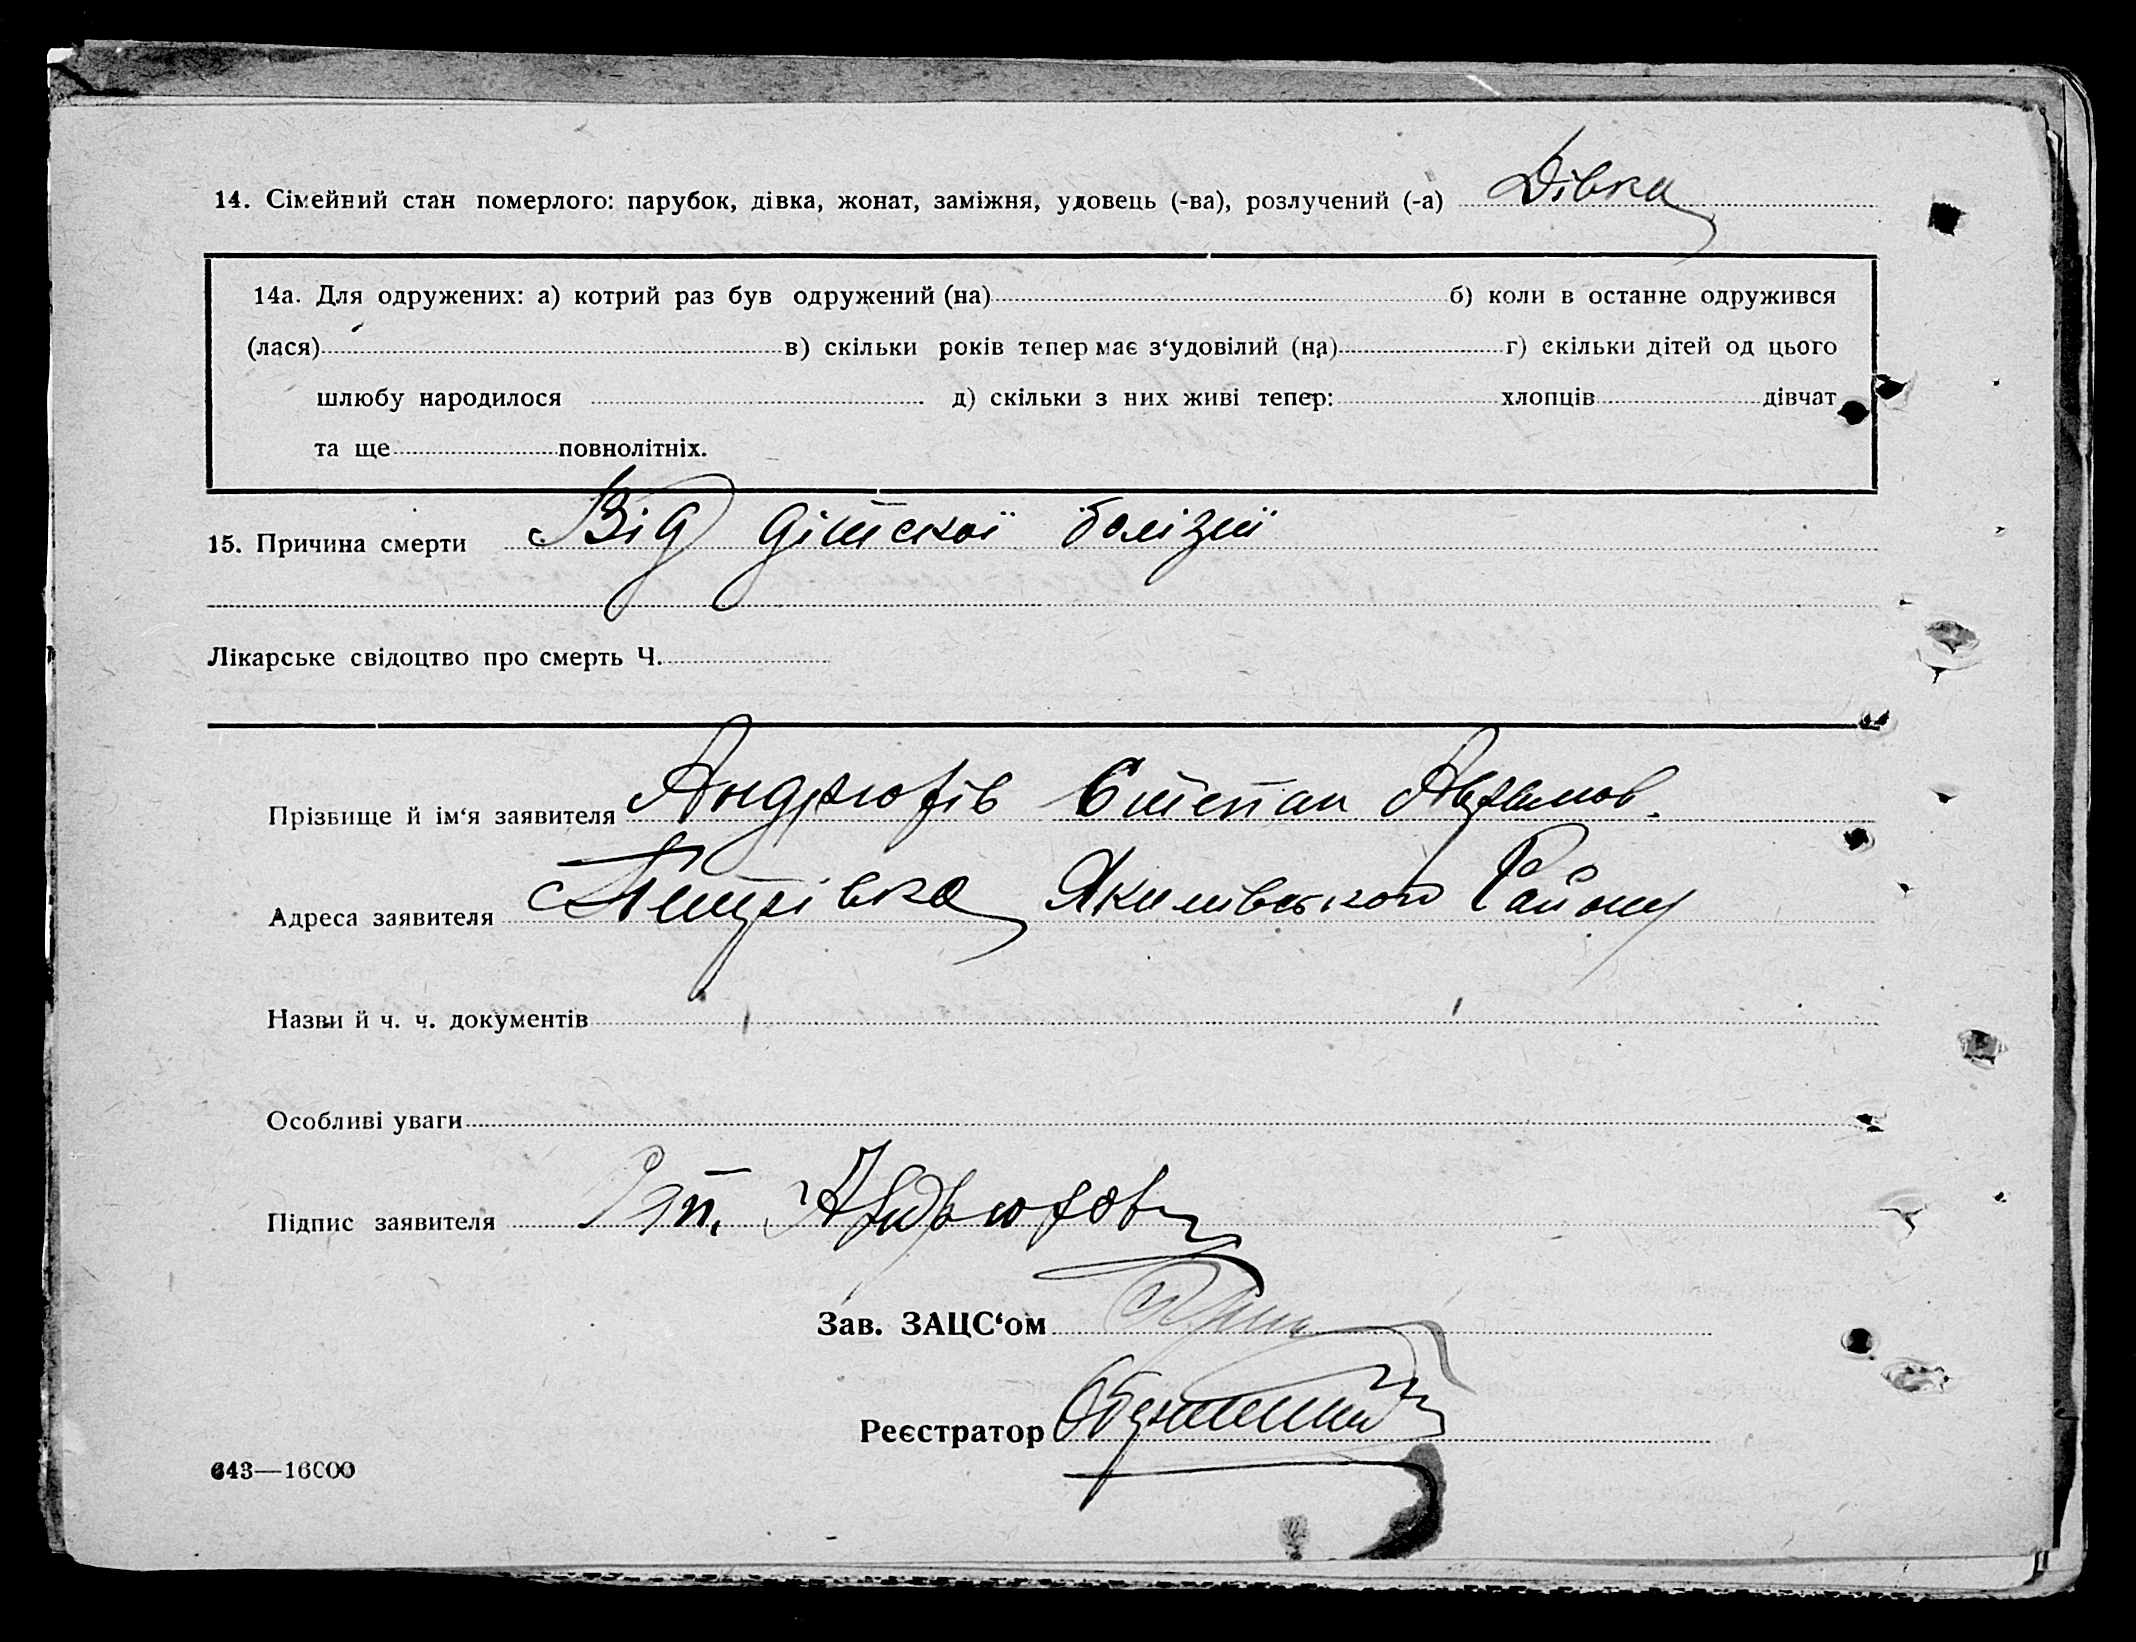 14. Сімейний стан померлого: парубок, дівка, жонат, заміжня, удовець (-ва), розлучений (-а) Дівка
14а. Для одружених: а) котрий раз був одружений (на) б) коли в останнє одружився
(лася) в) скільки років тепер має з‘удовілий (на) г) скільки дітей од цього
шлюбу народилося д) скільки з них живі тепер: хлопців дівчат
та ще повнолітніх.
15. Причина смерти Від дітскої болізні
Лікарське свідоцтво про смерть Ч.
Прізвище й ім‘я заявителя Степан
Адреса заявителя Петрівка Якимівского Району
Назви й ч. ч. документів
Особливі уваги
Підпис заявителя
Зав. ЗАЦС‘ом
Реєстратор
643—16000